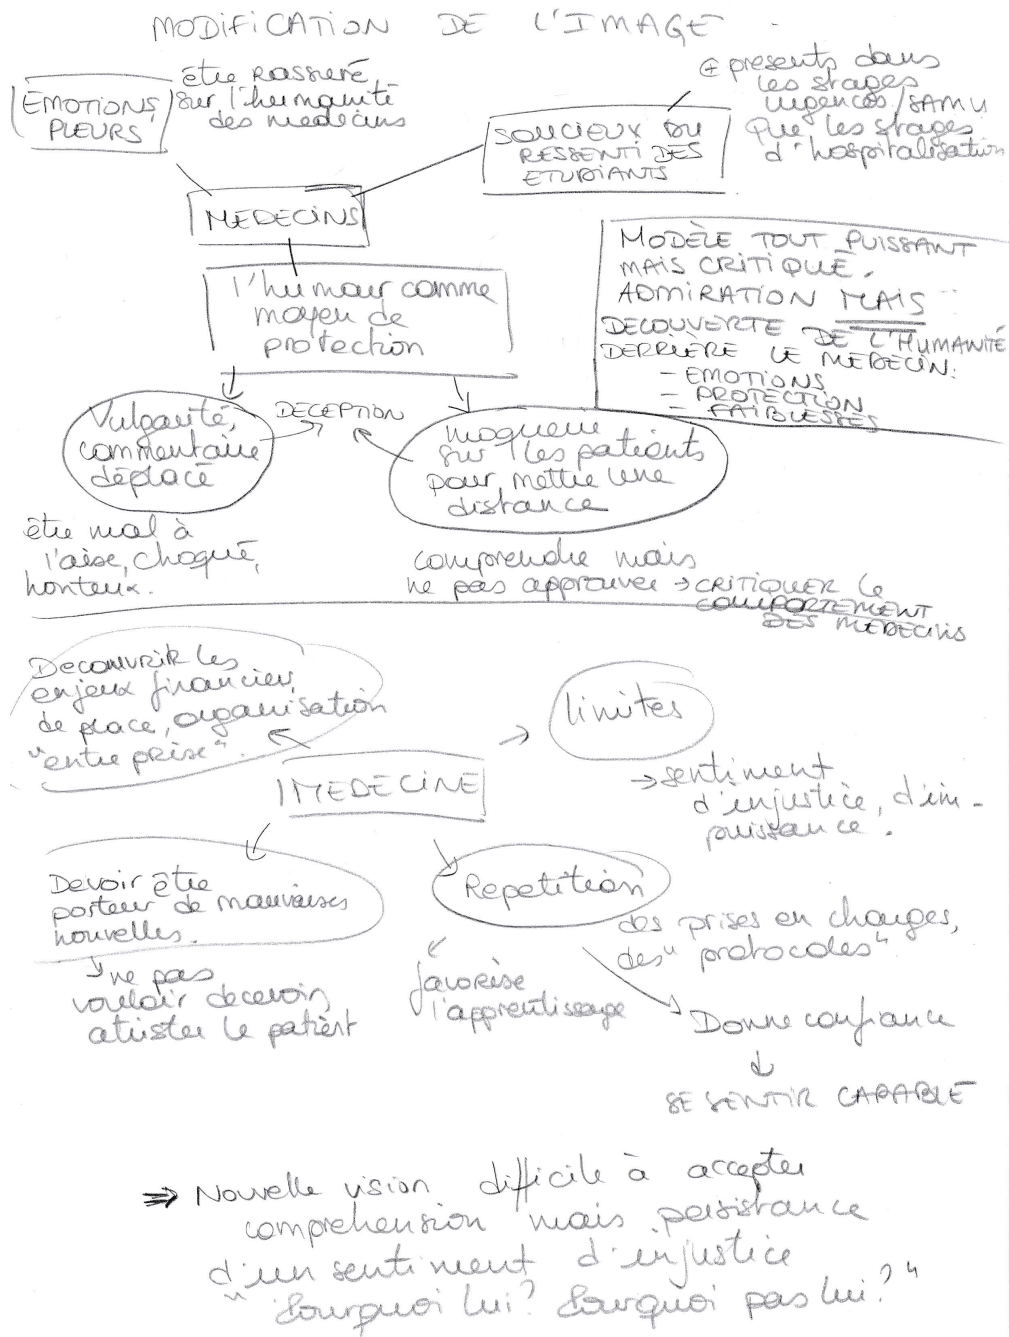 MODIFICATION DE L'IMAGE
EMOTIONS,
PLEURS
être rassuré
sur l'humanité
des medecins
⊕ presents dans
les stages
urgences/SAMU
que les stages
d'hospitalisation
SOUCIEUX DU
RESSENTI DES
ETUDIANTS
MEDECINS
l'humour comme
moyen de
protection
MODÈLE TOUT PUISSANT
MAIS CRITIQUÉ.
ADMIRATION MAIS
DECOUVERTE DE L'HUMANITÉ
DERRIÈRE LE MEDECIN:
- EMOTIONS
- PROTECTION
- FAIBLESSES
Vulgarité,
commentaire
déplacé
DECEPTION
moquerie
sur les patients
pour mettre une
distance
être mal à
l'aise, choqué,
honteux.
comprendre mais
ne pas approuver → CRITIQUER le
COMPORTEMENT
DES MEDECINS
Decouvrir les
enjeux financiers,
de place, organisation
"entreprise".
limites
→ sentiment
d'injustice, d'im-
puissance.
MEDECINE
Devoir être
porteur de mauvaises
nouvelles.
ne pas
vouloir decevoir,
attrister le patient
Repetition
des prises en charges,
des "protocoles"
favorise
l'apprentissage
Donne confiance
↓
SE SENTIR CAPABLE
⇒ Nouvelle vision difficile à accepter
comprehension mais persistance
d'un sentiment d'injustice
"Pourquoi lui? Pourquoi pas lui?"